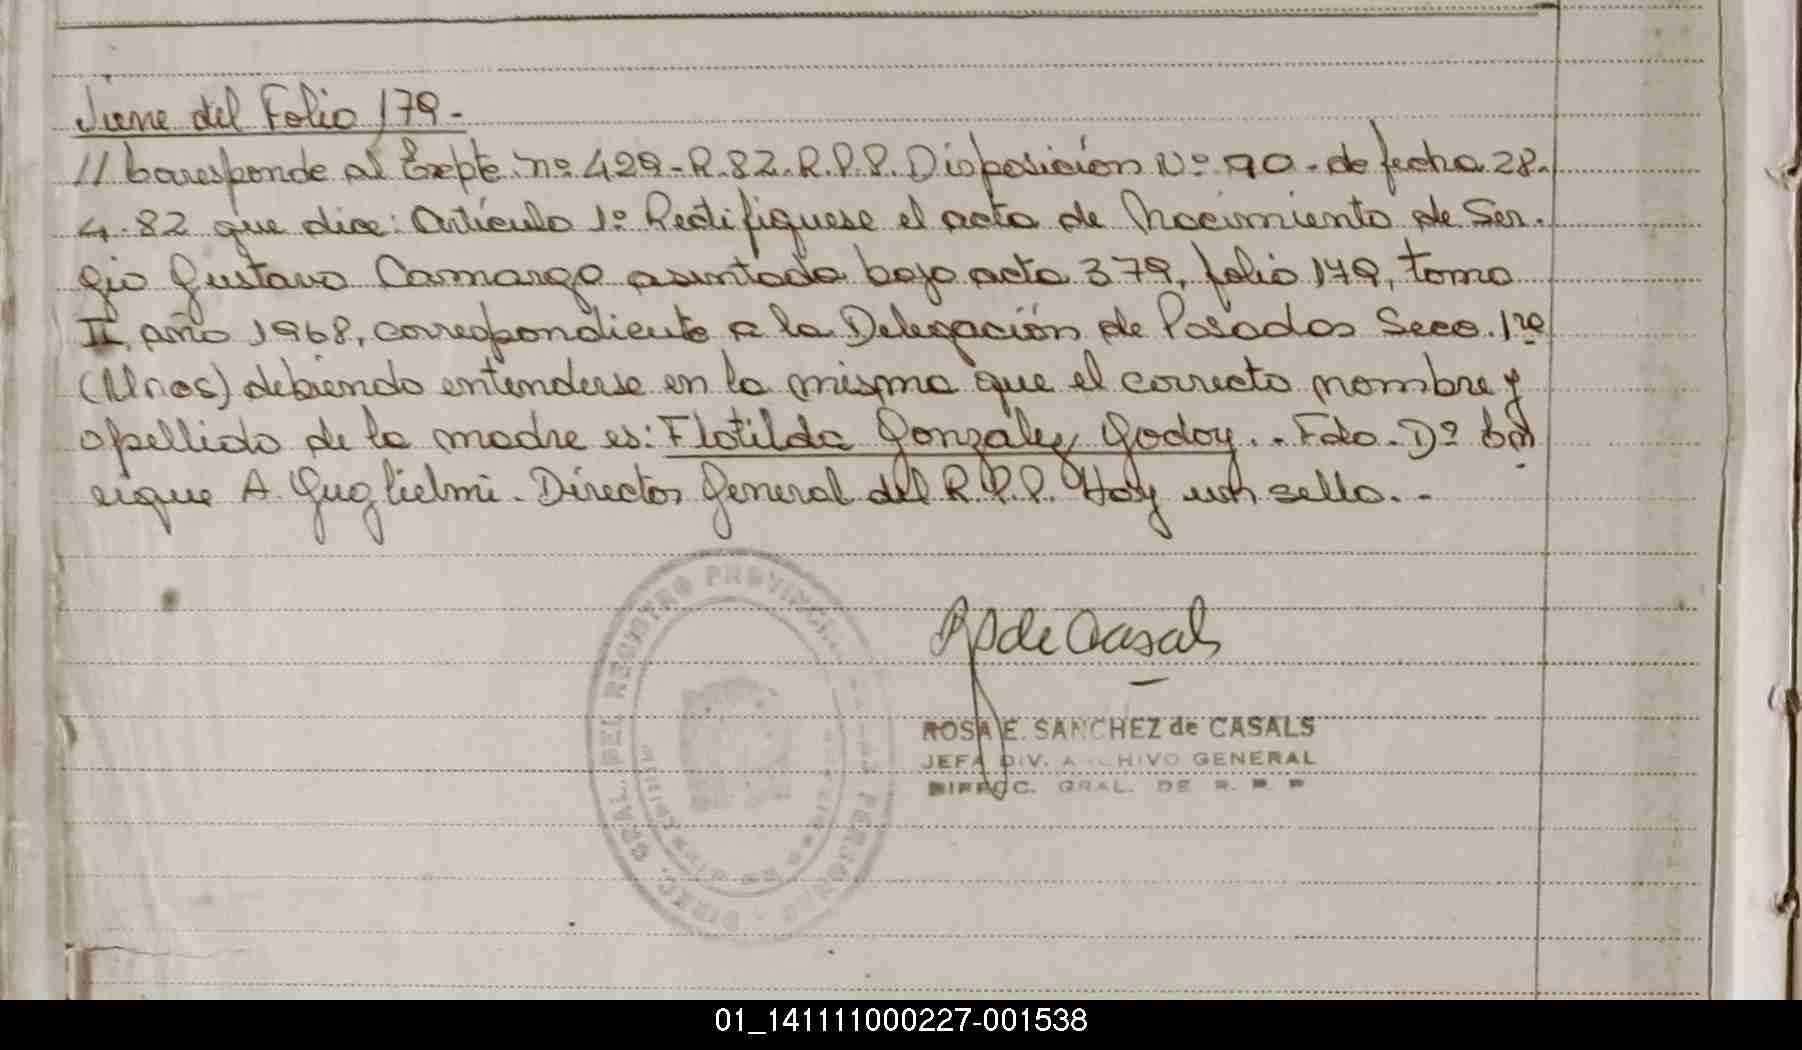 Viene del Folio 179.-
// Corresponde al Expte. nº 429-R.82.R.P.P. Disposición Nº 90 - de fecha 28.
4.82 que dice: Artículo 1º Rectifíquese el acta de Nacimiento de Ser-
gio Gustavo Camargo asentada bajo acta 379, folio 179, tomo
II, año 1968, correspondiente a la Delegación de Posadas Secc. 1ra
(Unos) debiendo entenderse en la misma que el correcto nombre y
apellido de la madre es: Flotilda Gonzalez Godoy.. - Fdo. Dº En
rique A. Guglielmi. Director General del R.P.P. Hay un sello. -
DIREC. GRAL. DEL REGISTRO PROVINCIAL DE LAS PERSONAS
RSde Casals
ROSA E. SANCHEZ de CASALS
JEFA DIV. ARCHIVO GENERAL
DIRECC. GRAL. DE R. P. P
01_141111000227-001538